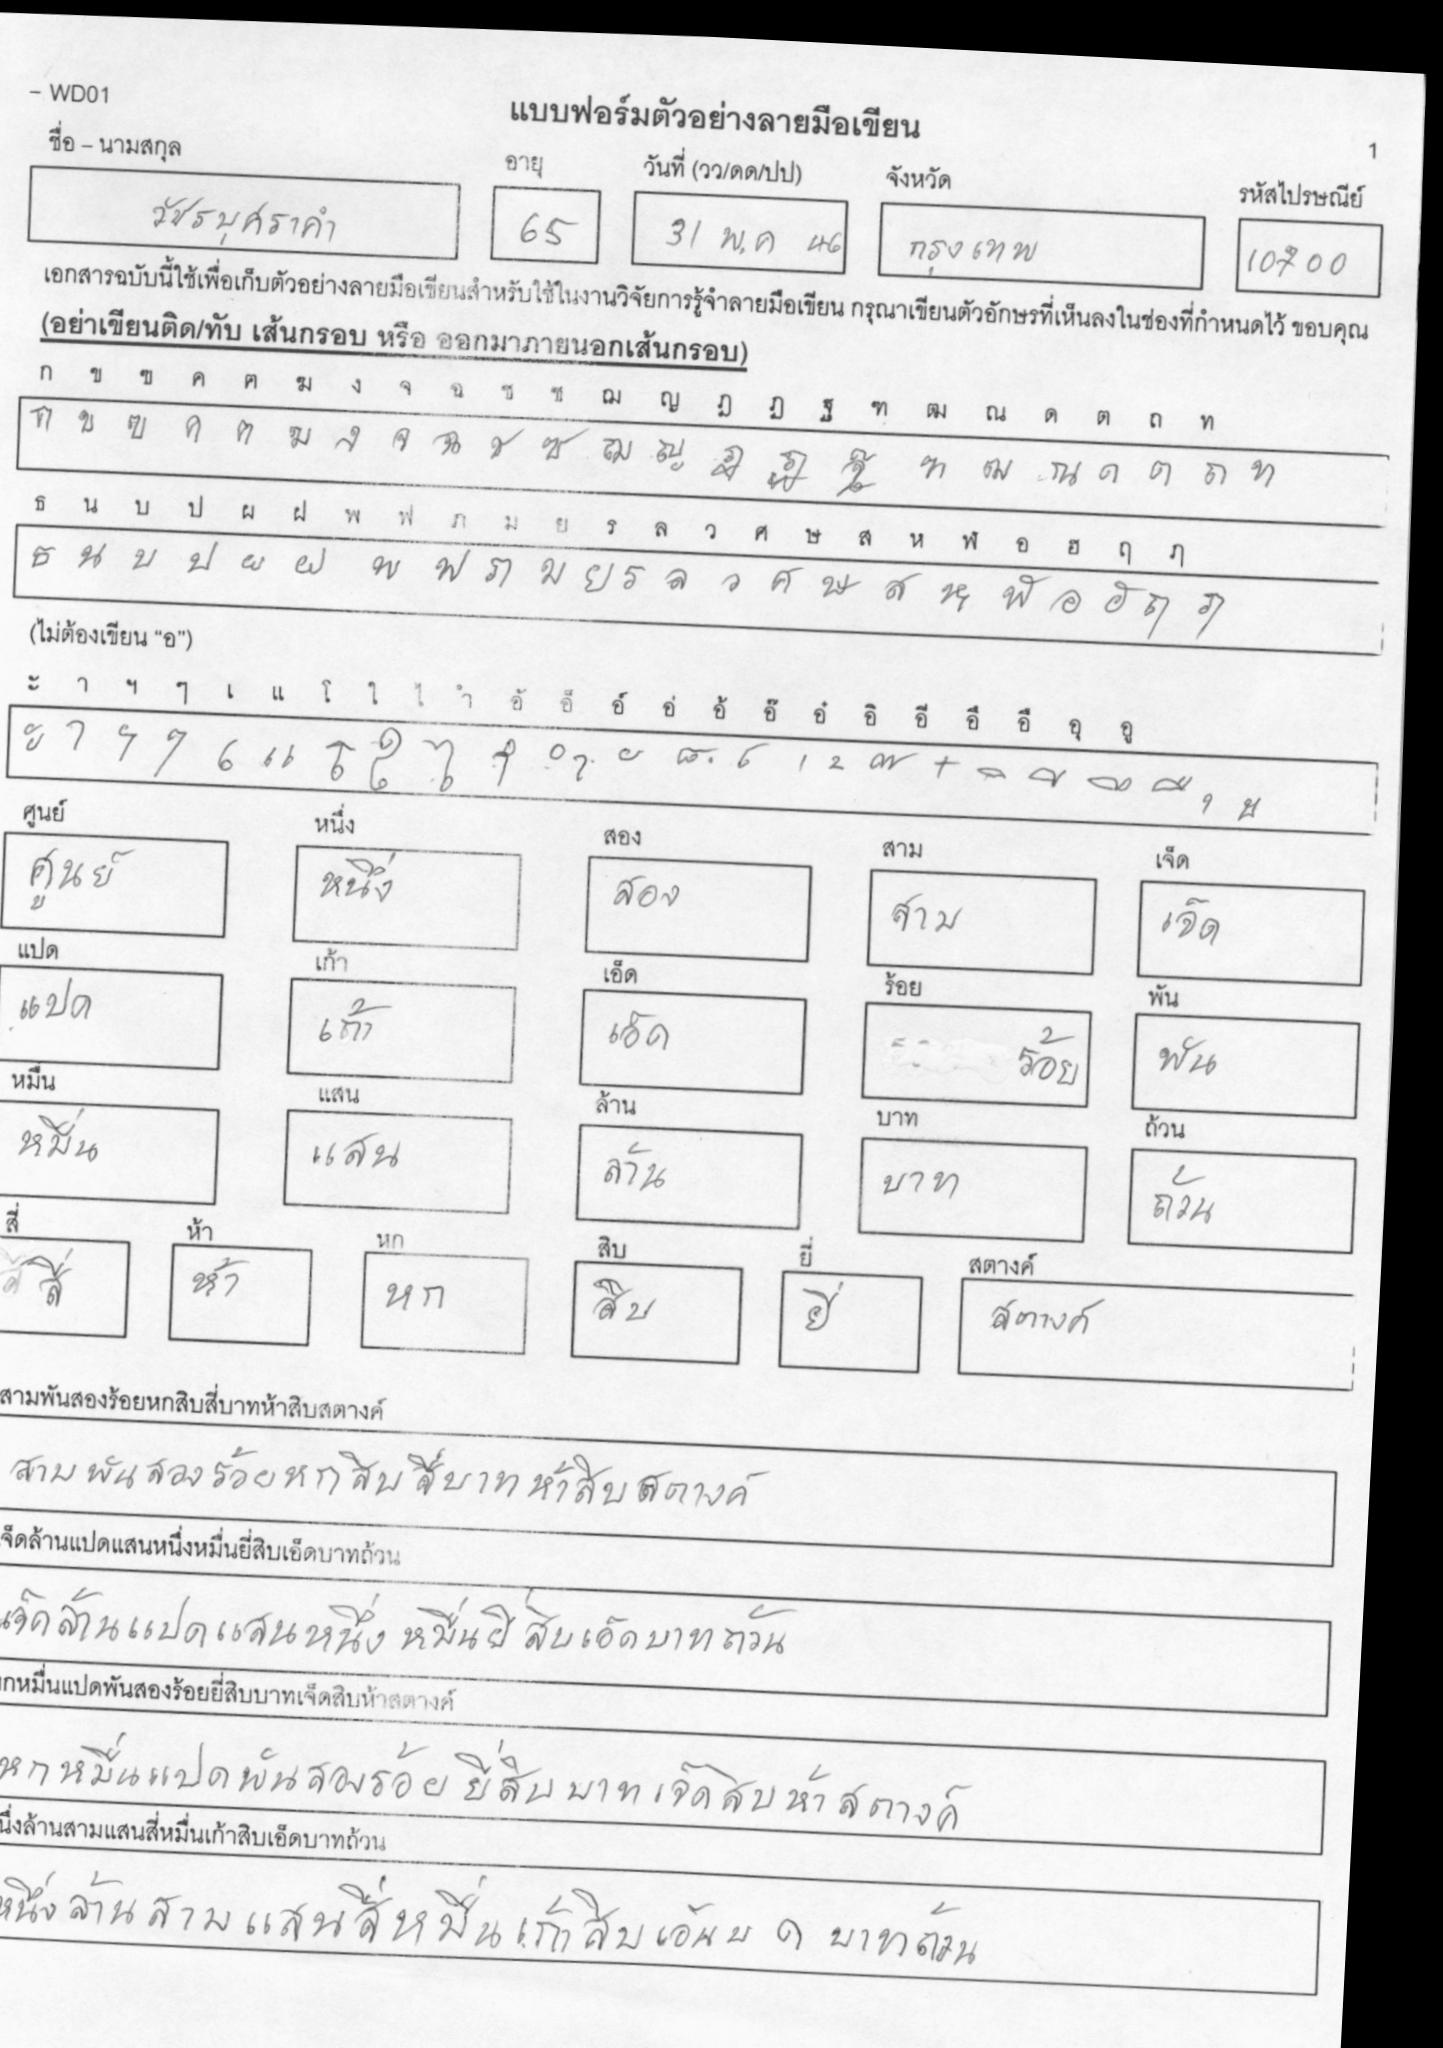 – WD01
แบบฟอร์มตัวอย่างลายมือเขียน
1
ชื่อ – นามสกุล อายุ วันที่ (วว/ดด/ปป) จังหวัด รหัสไปรษณีย์
วัชรบุศราคำ 65 31 พ.ค 46 กรุงเทพ 10700
เอกสารฉบับนี้ใช้เพื่อเก็บตัวอย่างลายมือเขียนสำหรับใช้ในงานวิจัยการรู้จำลายมือเขียน กรุณาเขียนตัวอักษรที่เห็นลงในช่องที่กำหนดไว้ ขอบคุณ
(อย่าเขียนติด/ทับ เส้นกรอบ หรือ ออกมาภายนอกเส้นกรอบ)
ก ข ฃ ค ฅ ฆ ง จ ฉ ช ซ ฌ ญ ฎ ฏ ฐ ฑ ฒ ณ ด ต ถ ท
ก ข ฃ ค ฅ ฆ ง จ ฉ ช ซ ฌ ญ ฎ ฏ ฐ ฑ ฒ ณ ด ต ถ ท
ธ น บ ป ผ ฝ พ ฟ ภ ม ย ร ล ว ศ ษ ส ห ฬ อ ฮ ฤ ฦ
ธ น บ ป ผ ฝ พ ฟ ภ ม ย ร ล ว ศ ษ ส ห ฬ อ ฮ ฤ ฦ
(ไม่ต้องเขียน “อ”)
ะ า ฯ ๆ เ แ โ ใ ไ ำ อั อ็ อ์ อ่ อ้ อ๊ อ๋ อิ อี อึ อื อุ อู
ะ า ฯ ๆ เ แ โ ใ ไ
ศูนย์ หนึ่ง สอง สาม เจ็ด
ศูนย์ หนึ่ง สอง สาม เจ็ด
แปด เก้า เอ็ด ร้อย พัน
แปด เก้า เอ็ด ร้อย พัน
หมื่น แสน ล้าน บาท ถ้วน
หมื่น แสน ล้าน บาท ถ้วน
สี่ ห้า หก สิบ ยี่ สตางค์
สี่ ห้า หก สิบ ยี่ สตางค์
สามพันสองร้อยหกสิบสี่บาทห้าสิบสตางค์
สามพันสองร้อยหกสิบสี่บาทห้าสิบสตางค์
จ็ดล้านแปดแสนหนึ่งหมื่นยี่สิบเอ็ดบาทถ้วน
เจ็ดล้านแปดแสนหนึ่งหมื่นยี่สิบเอ็ดบาทถ้วน
กหมื่นแปดพันสองร้อยยี่สิบบาทเจ็ดสิบห้าสตางค์
หกหมื่นแปดพันสองร้อยยี่สิบบาทเจ็ดสิบห้าสตางค์
นึ่งล้านสามแสนสี่หมื่นเก้าสิบเอ็ดบาทถ้วน
หนึ่งล้านสามแสนสี่หมื่นเก้าสิบ บาทถ้วน